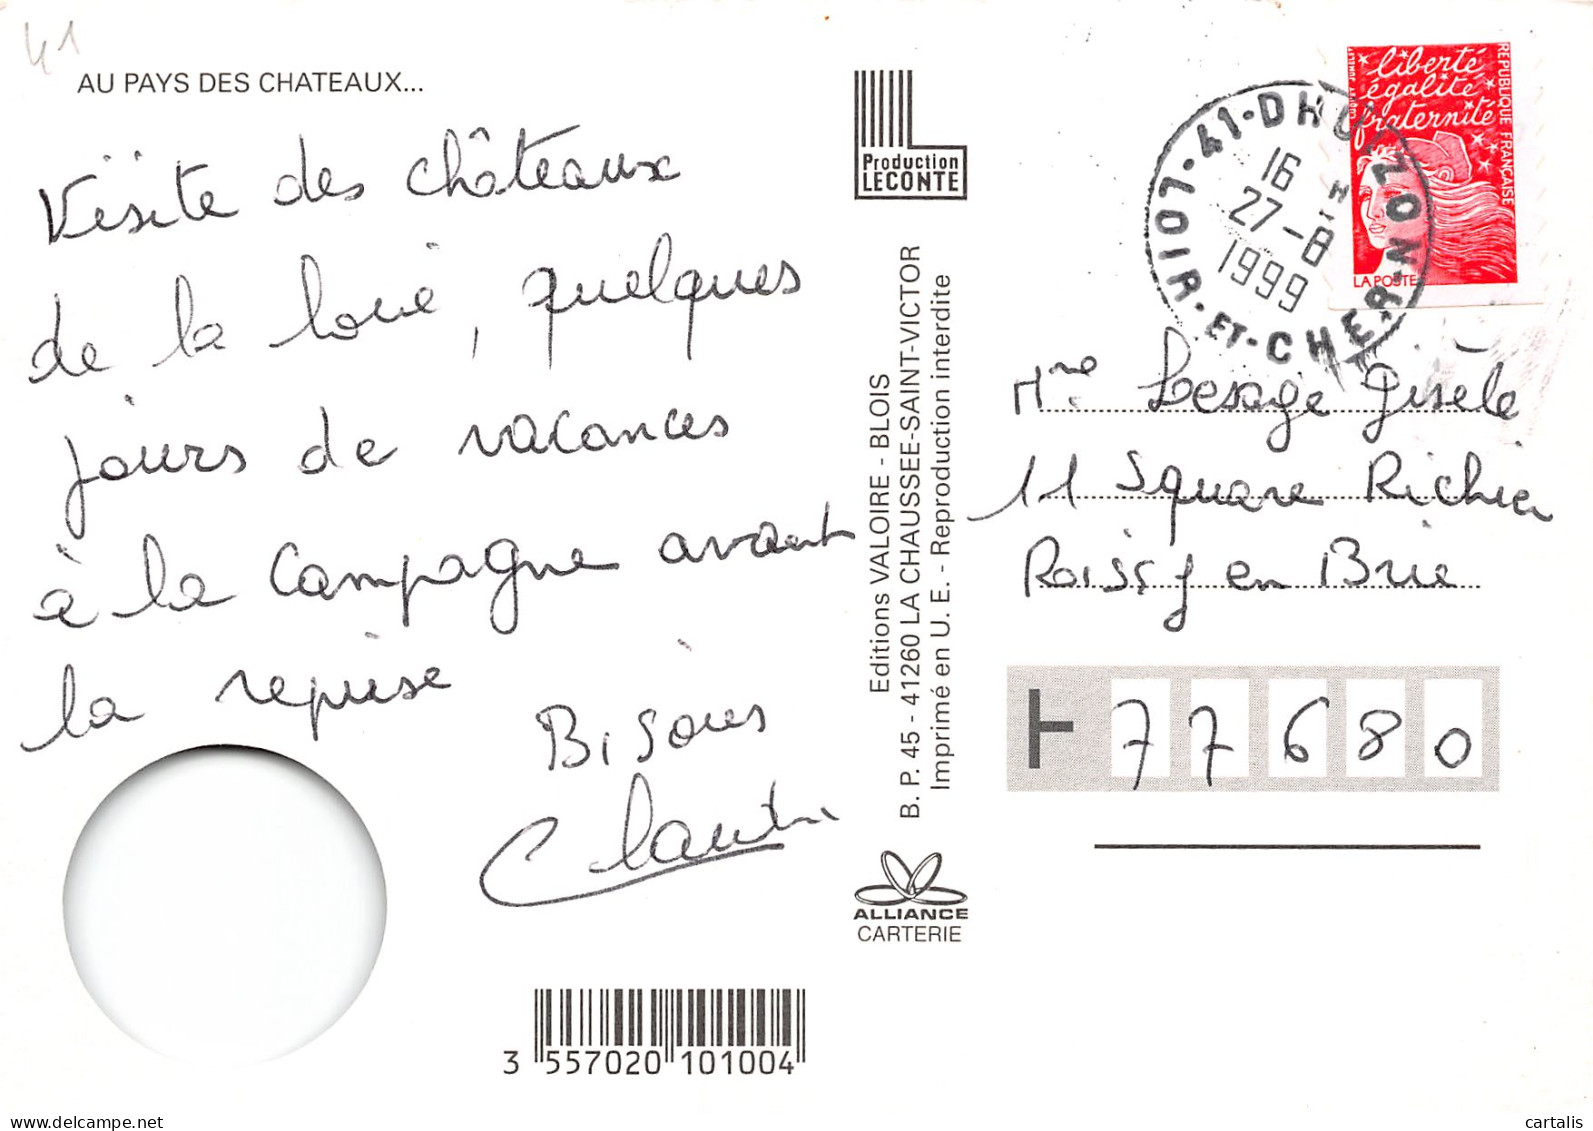 41
AU PAYS DES CHATEAUX...
Visite des châteaux
de la loire, quelques
jours de vacances
à la campagne avant
la reprise
Bisous
Production
LECONTE
Editions VALOIRE - BLOIS
B. P. 45 - 41260 LA CHAUSSEE-SAINT-VICTOR
Imprimé en U. E. - Reproduction interdite
ALLIANCE
CARTERIE
3 557020 101004
liberté
égalité
fraternité
REPUBLIQUE FRANÇAISE
LA POSTE
41-DHUIZON
16 H
27-8
1999
LOIR-ET-CHER
Mme Lesage Gisèle
11 Square Richier
Roissy en Brie
77680
cartalis
delcampe.net